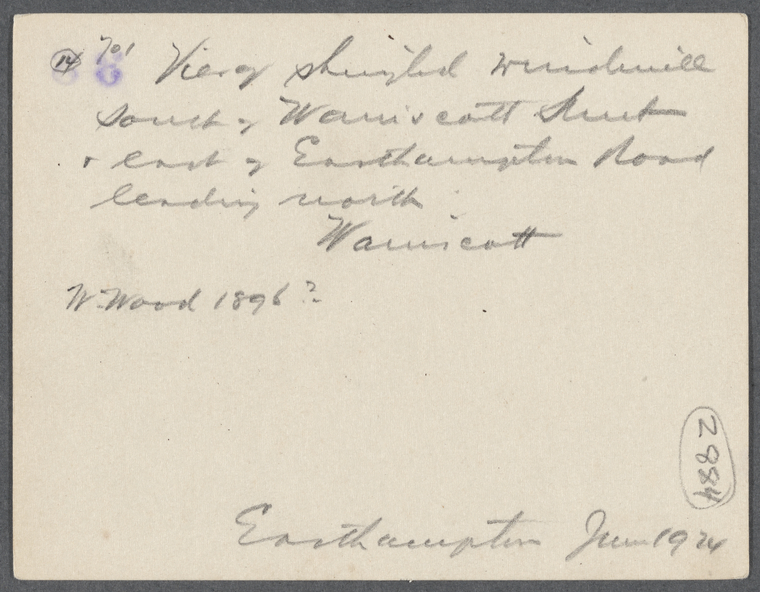 14 701 View of shingled windmill
south of Wainscott Street
+ east of Easthampton Road
leading north
Wainscott
W. Wood 1896?
2884
Easthampton June 1924